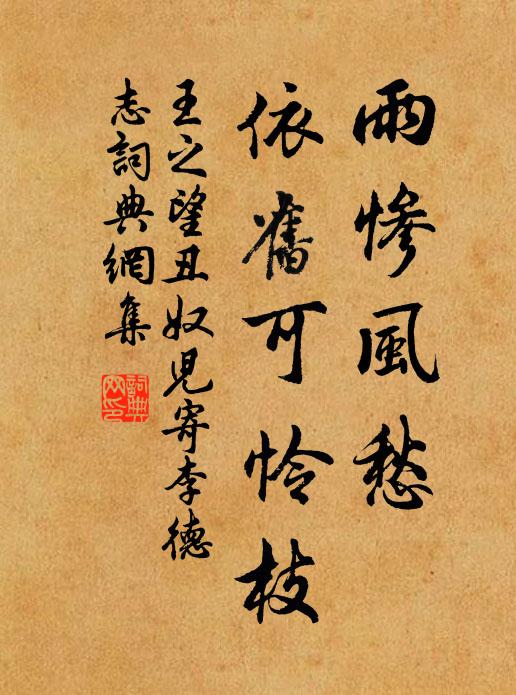 雨慘風愁
依舊可怜枝
王之望丑奴兒寄李德
志詞典網集
詞典网印